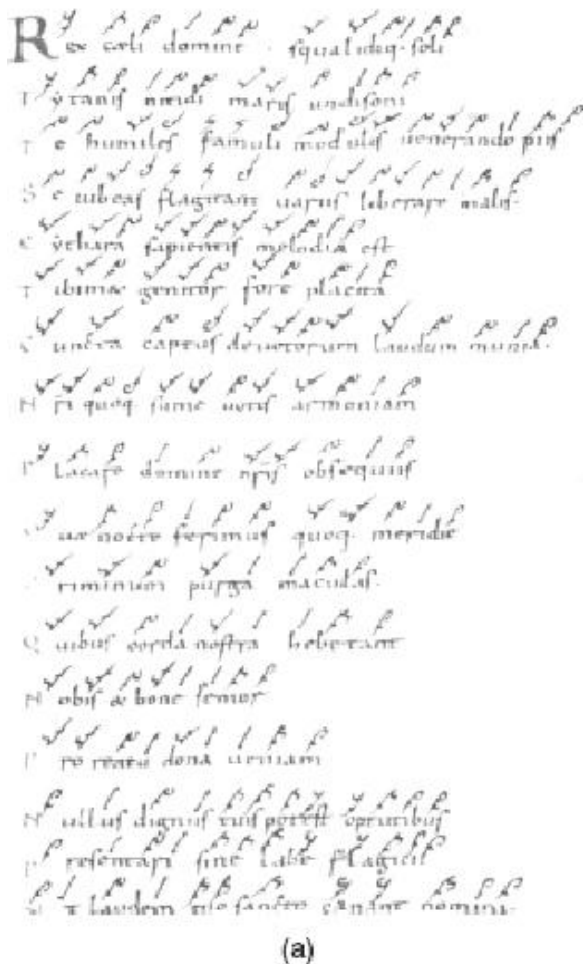 Rex cæli domine · squalidiq· soli
Tytanis maris undisoni
Te humiles famuli modulis uenerando piis
Se iubeas flagitant uariis liberare malis·
Cythara sapientis melodia est
genitor fore placita
Cuncta captus deuotorum laudum munia·
quoq· sume ueris armoniam
Placare domine nris obsequiis
Quæ nocte ferimus quoq· meridie
Criminum purga maculas·
Quibus corda nostra hebetant
Nobis & bone
Pro reatu dona ueniam
Nullus dignus tuis potest optutibus
Presentari sine labe flagicii
Ut laudem sancto canant nomini·
(a)